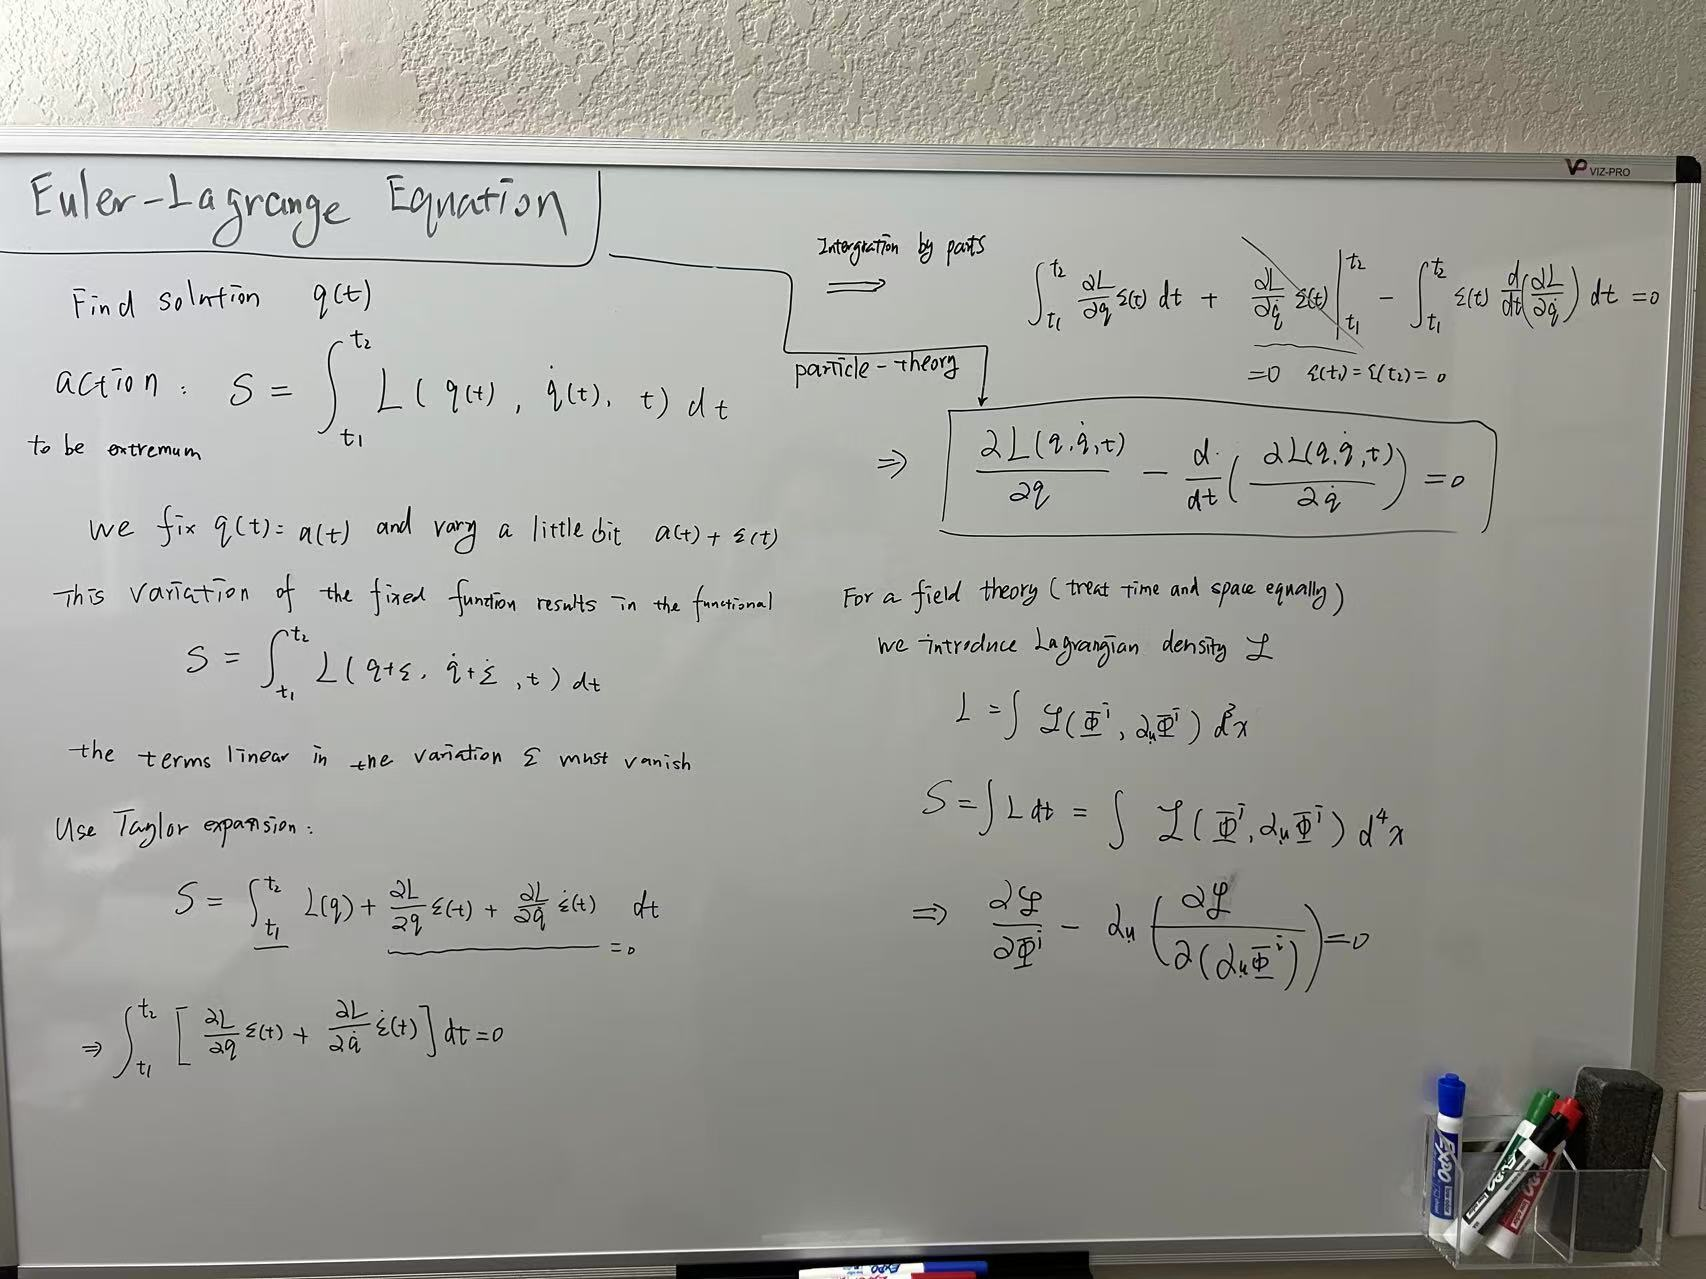 VIZ-PRO
Euler-Lagrange Equation
Find solution q(t)
action: S = ∫_{t₁}^{t₂} L(q(t), q̇(t), t) dt
to be extremum
we fix q(t) = a(t) and vary a little bit a(t) + ε(t)
This variation of the fixed function results in the functional
S = ∫_{t₁}^{t₂} L(q+ε, q̇+ε̇, t) dt
the terms linear in the variation ε must vanish
Use Taylor expansion:
S = ∫_{t₁}^{t₂} L(q) + ∂L/∂q ε(t) + ∂L/∂q̇ ε̇(t) dt
=0
⇒ ∫_{t₁}^{t₂} [∂L/∂q ε(t) + ∂L/∂q̇ ε̇(t)] dt = 0
Intergration by parts
⟹ ∫_{t₁}^{t₂} ∂L/∂q ε(t) dt + ∂L/∂q̇ ε(t) |_{t₁}^{t₂} − ∫_{t₁}^{t₂} ε(t) d/dt(∂L/∂q̇) dt = 0
=0 ε(t₁) = ε(t₂) = 0
particle-theory
⇒ ∂L(q, q̇, t)/∂q − d/dt(∂L(q, q̇, t)/∂q̇) = 0
For a field theory (treat time and space equally)
we introduce Lagrangian density ℒ
L = ∫ ℒ(Φⁱ, ∂_μΦⁱ) d³x
S = ∫ L dt = ∫ ℒ(Φⁱ, ∂_μΦⁱ) d⁴x
⇒ ∂ℒ/∂Φⁱ − ∂_μ(∂ℒ/∂(∂_μΦⁱ)) = 0
EXPO
EXPO